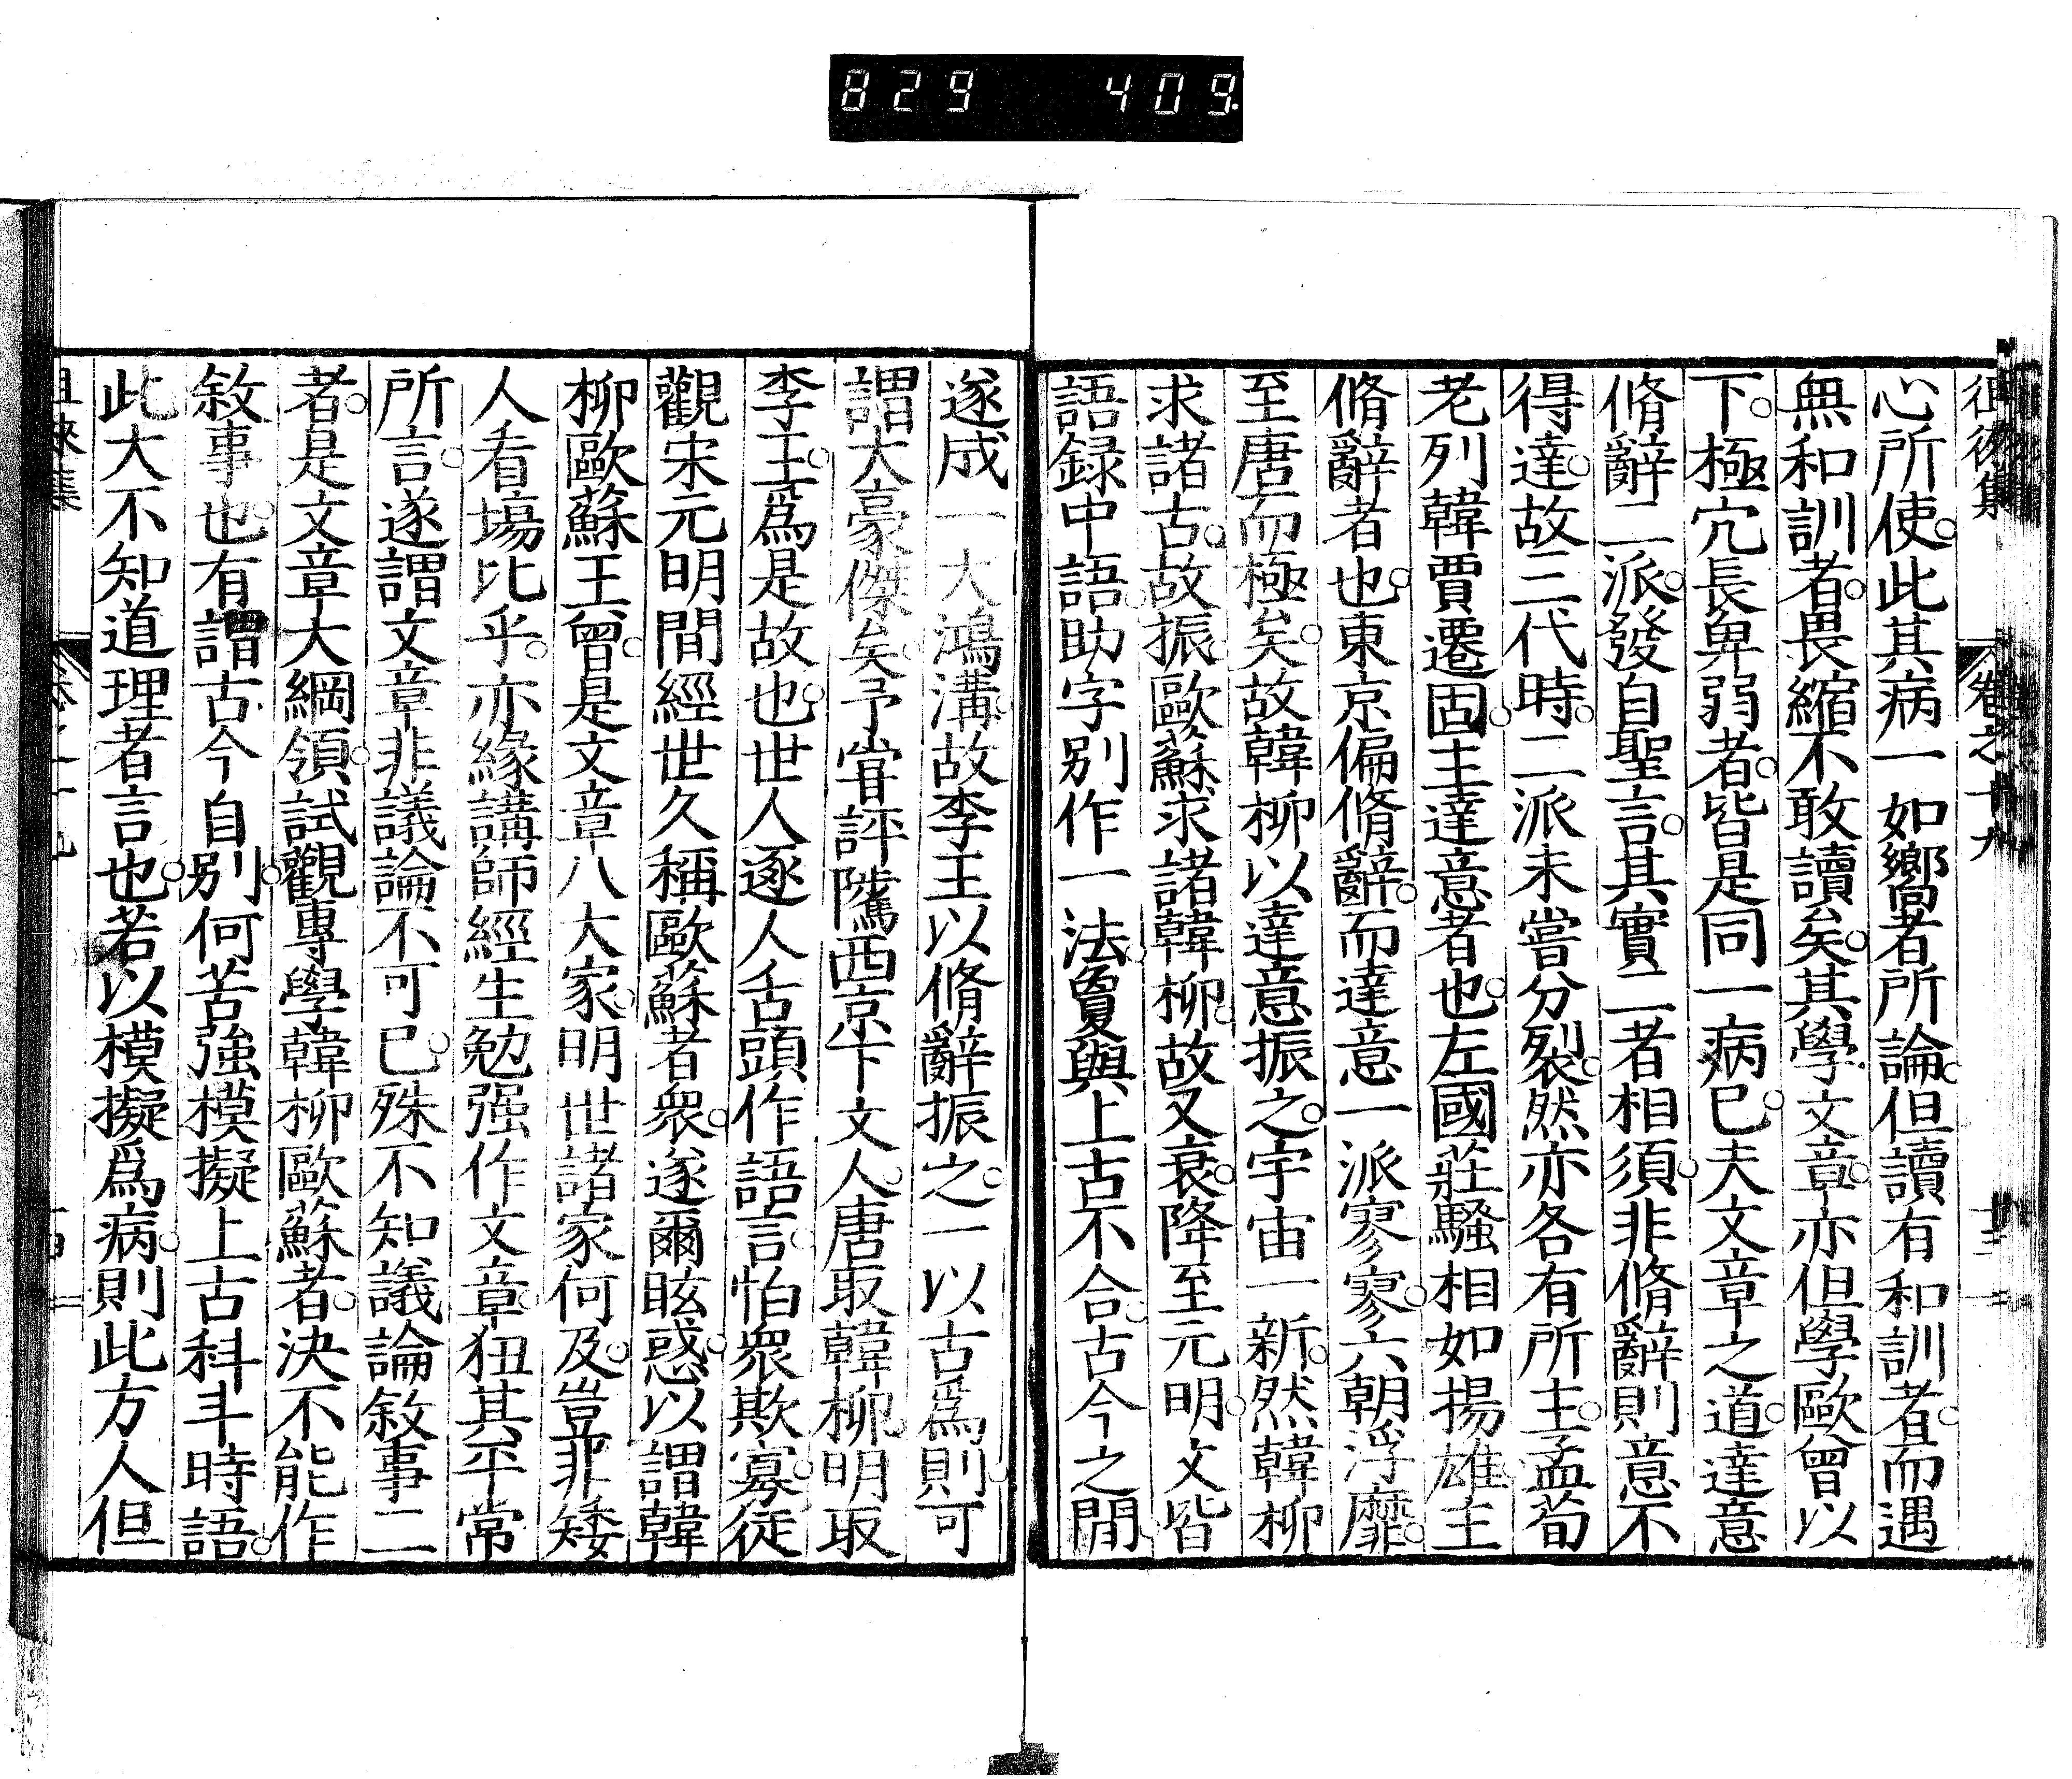 829 409.
徂徠集 卷之十九 十三
心所使。此其病一如嚮者所論。但讀有和訓者。而遇
無和訓者。畏縮不敢讀矣。其學文章。亦但學歐曾以
下。極冗長卑弱者。皆是同一病已。夫文章之道。達意
脩辭二派。發自聖言。其實二者相須。非脩辭則意不
得達。故三代時。二派未嘗分裂。然亦各有所主。孟荀
老列韓賈遷固。主達意者也。左國莊騷相如揚雄。主
脩辭者也。東京偏脩辭。而達意一派寥寥。六朝浮靡。
至唐而極矣。故韓柳以達意振之。宇宙一新。然韓柳
求諸古。故振。歐蘇求諸韓柳。故又衰。降至元明。文皆
語録中語。助字別作一法。敻與上古不合。古今之間
遂成一大鴻溝。故李王以脩辭振之。一以古爲則。可
謂大豪傑矣。予嘗評隲西京下文人。唐取韓柳。明取
李王。爲是故也。世人逐人舌頭作語言。怕衆欺寡。徒
觀宋元明間經世久稱歐蘇者衆。遂爾眩惑。以謂韓
柳歐蘇王曾。是文章八大家。明世諸家何及。豈非矮
人看塲比乎。亦緣講師經生勉强作文章。狃其平常
所言。遂謂文章非議論不可已。殊不知議論敘事二
者。是文章大綱領。試觀專學韓柳歐蘇者。決不能作
敘事也。有謂古今自別。何苦強模擬上古科斗時語。
此大不知道理者言也。若以模擬爲病。則此方人但